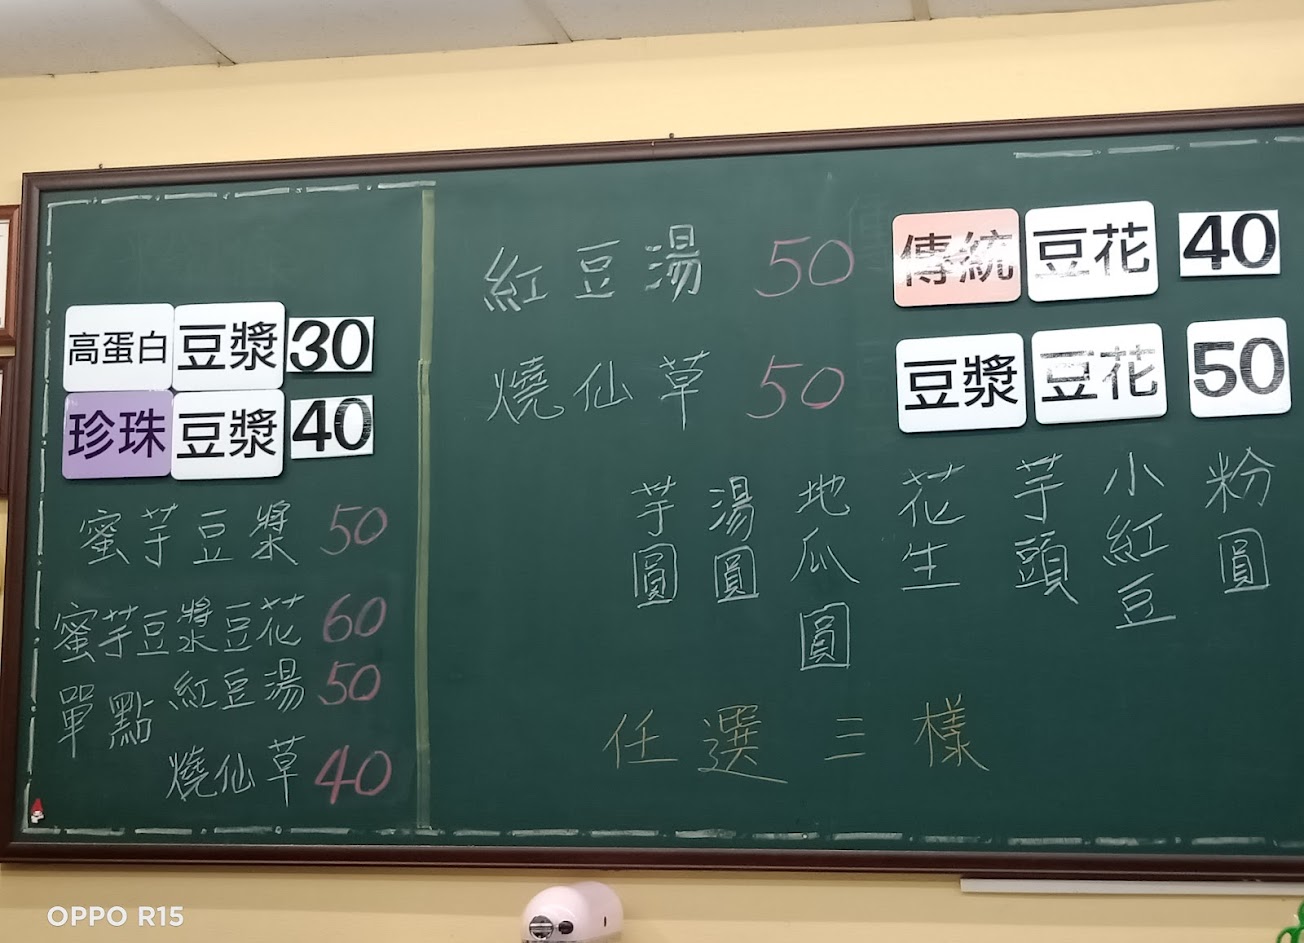 高蛋白豆漿30
珍珠豆漿40
蜜芋豆漿 50
蜜芋豆漿豆花 60
單點 紅豆湯 50
燒仙草 40
傳統豆花 40
豆漿豆花 50
紅豆湯 50
燒仙草 50
粉圓
小紅豆
芋頭
花生
地瓜圓
湯圓
芋圓
任選三樣
OPPO R15